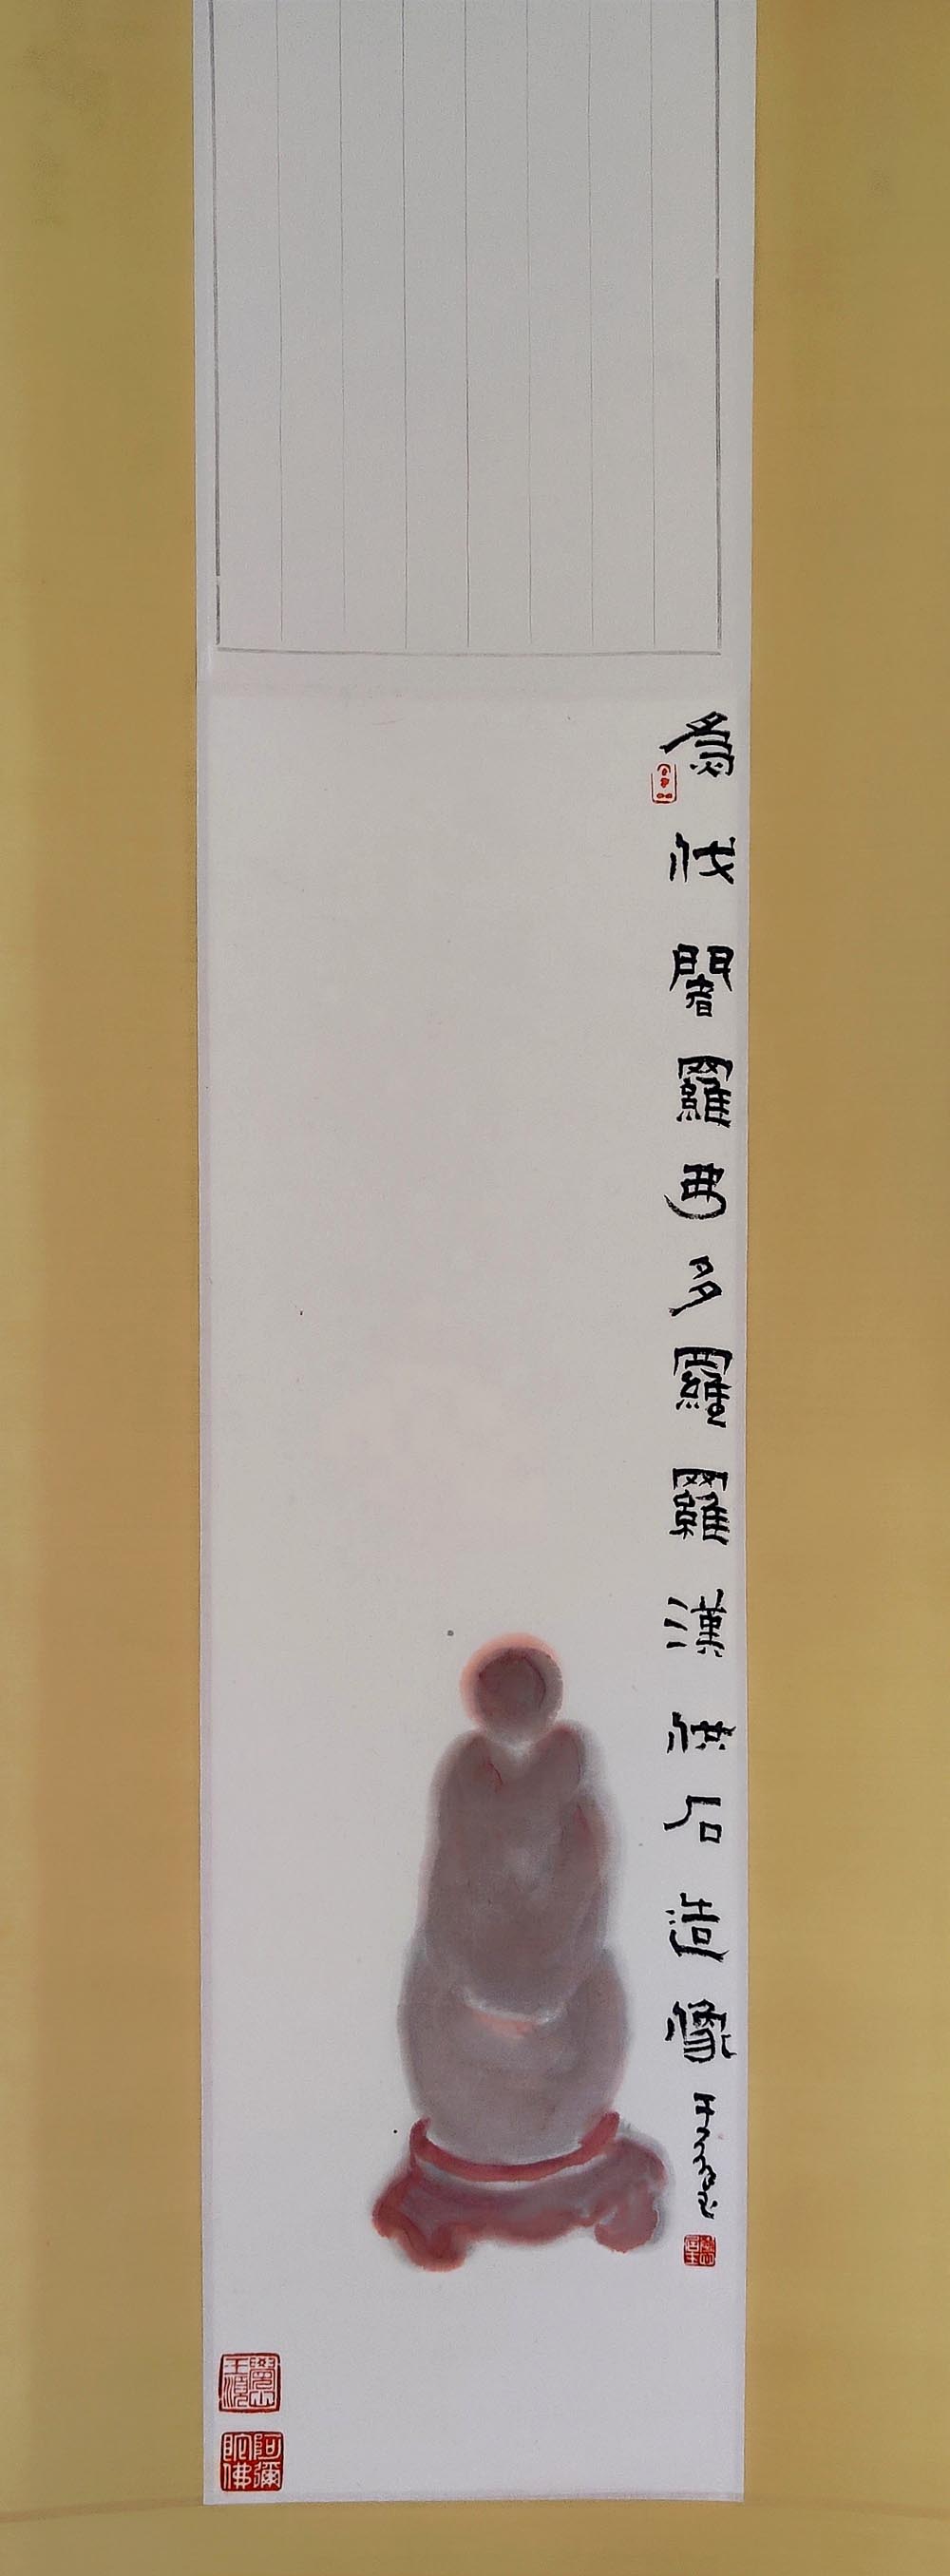 為伐闍羅弗多羅羅漢供石造像
阿彌陀佛